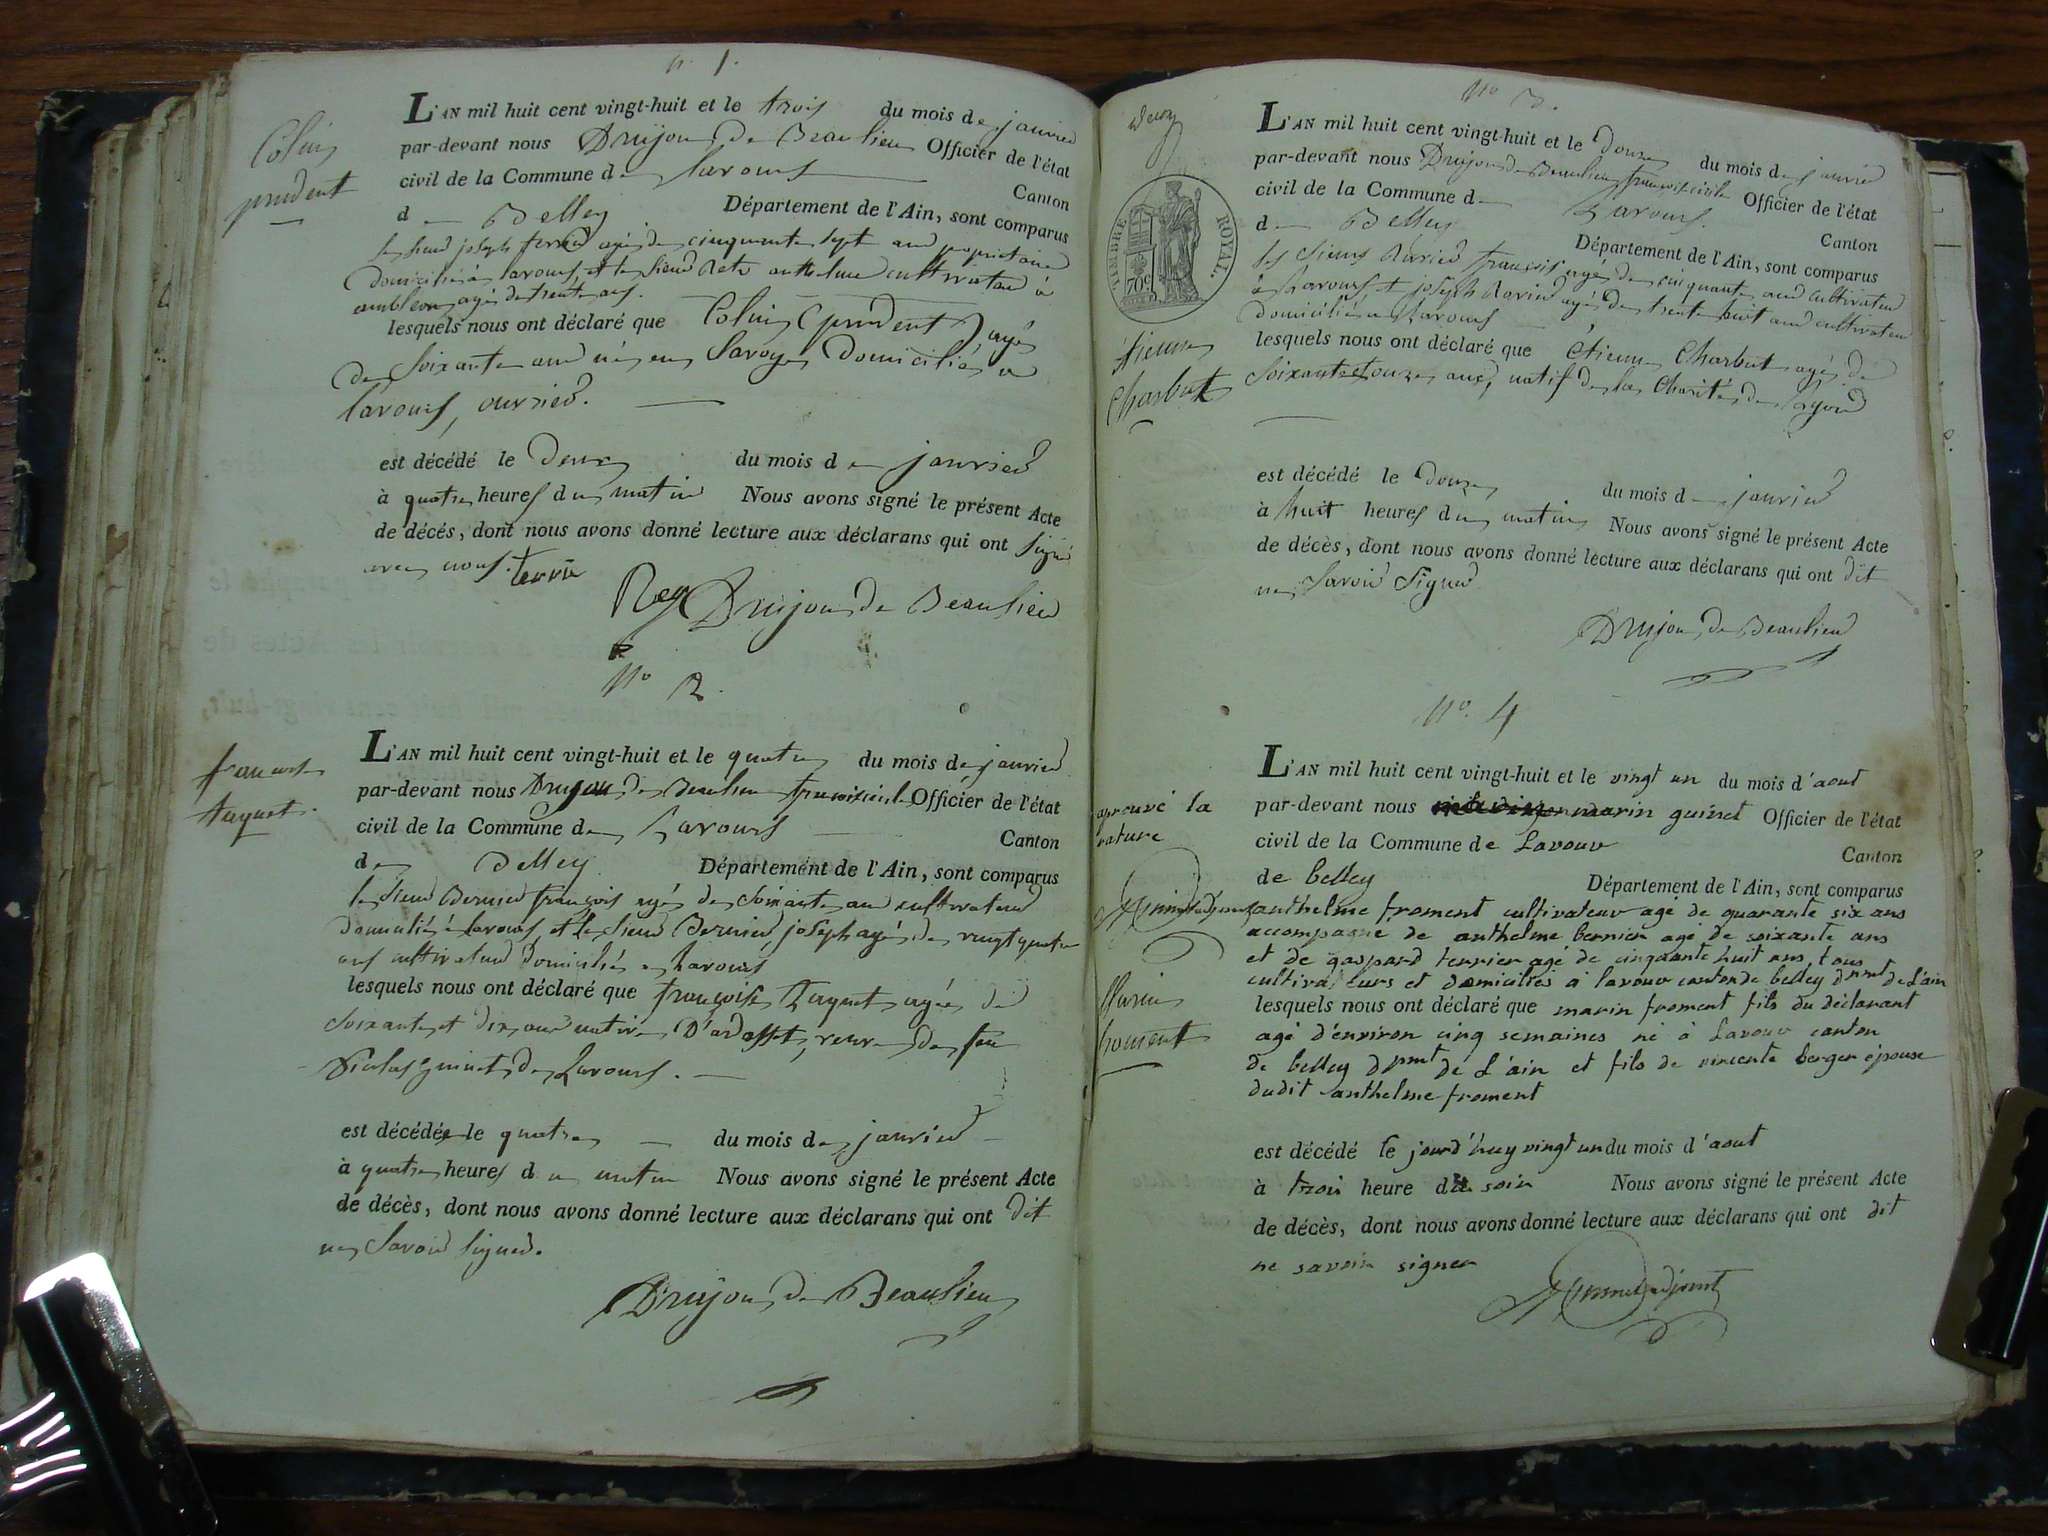 n. 1.
Colin
prudent
L'AN mil huit cent vingt-huit et le trois du mois de janvier
par-devant nous Drujon de Beaulieu Officier de l'état
civil de la Commune de Lavours
Canton
de Belley Département de l'Ain, sont comparus
le sieur joseph terrier agé de cinquante sept ans propriétaire
domicilié à lavours, et le sieur anthelme cultivateur à
ambléon, agé de trente ans.
lesquels nous ont déclaré que Colin (prudent), agé
de soixante ans né en Savoye, Domicilié à
lavours, ouvrier.
est décédé le deux du mois de janvier
à quatre heures du matin Nous avons signé le présent Acte
de décès, dont nous avons donné lecture aux déclarans qui ont signé
avec nous. terrier
Rey Drujon de Beaulieu
No 2.
francoise
taquet.
L'AN mil huit cent vingt-huit et le quatre du mois de janvier
par-devant nous Drujon de Beaulieu Officier de l'état
civil de la Commune de Lavours
Canton
de Belley Département de l'Ain, sont comparus
le sieur Bernier françois agé de soixante ans cultivateur
domicilié à lavours, et le sieur Bernier, joseph agé de vingt quatre
ans cultivateur domicilié à Lavours
lesquels nous ont déclaré que françoise Taquet agée de
soixante et dix ans native D'ardosset, veuve de feu
Nicolas guinet de Lavours.
est décédée le quatre du mois de janvier
à quatre heures du matin Nous avons signé le présent Acte
de décès, dont nous avons donné lecture aux déclarans qui ont dit
ne savoir signer.
Drujon de Beaulieu
No 3.
deux
TIMBRE ROYAL.
70c
étienne
Charbut
L'AN mil huit cent vingt-huit et le douze du mois de janvier
par-devant nous Drujon de Beaulieu Officier de l'état
civil de la Commune de Lavours.
Canton
de Belley Département de l'Ain, sont comparus
les sieurs françois agé de cinquante ans cultivateur
à Lavours et joseph agé de trente huit ans cultivateur
domicilié à Lavours
lesquels nous ont déclaré que étienne Charbut agé de
soixante et onze ans, natif de la Charité de Lyon
est décédé le douze du mois de janvier
à huit heures du matin Nous avons signé le présent Acte
de décès, dont nous avons donné lecture aux déclarans qui ont dit
ne savoir signer
Drujon de Beaulieu
No. 4
aprouvé la
rature
Marin
froment
L'AN mil huit cent vingt-huit et le vingt un du mois d'aout
par-devant nous marin guinet Officier de l'état
civil de la Commune de Lavour
Canton
de belley Département de l'Ain, sont comparus
anthelme froment cultivateur agé de quarante six ans
accompagné de anthelme bernier agé de soixante ans
et de gaspard terrier agé de cinquante huit ans, tous
cultivateurs et domiciliés à lavour canton de belley dpmt de L'ain
lesquels nous ont déclaré que marin froment fils du déclarant
agé d'énviron cinq semaines né à Lavour canton
de belley dpmt de L'ain et fils de vincente berger épouse
dudit anthelme froment
est décédé le jourd'huy vingt un du mois d'aout
à troi heure du soir Nous avons signé le présent Acte
de décès, dont nous avons donné lecture aux déclarans qui ont dit
ne savoir signer